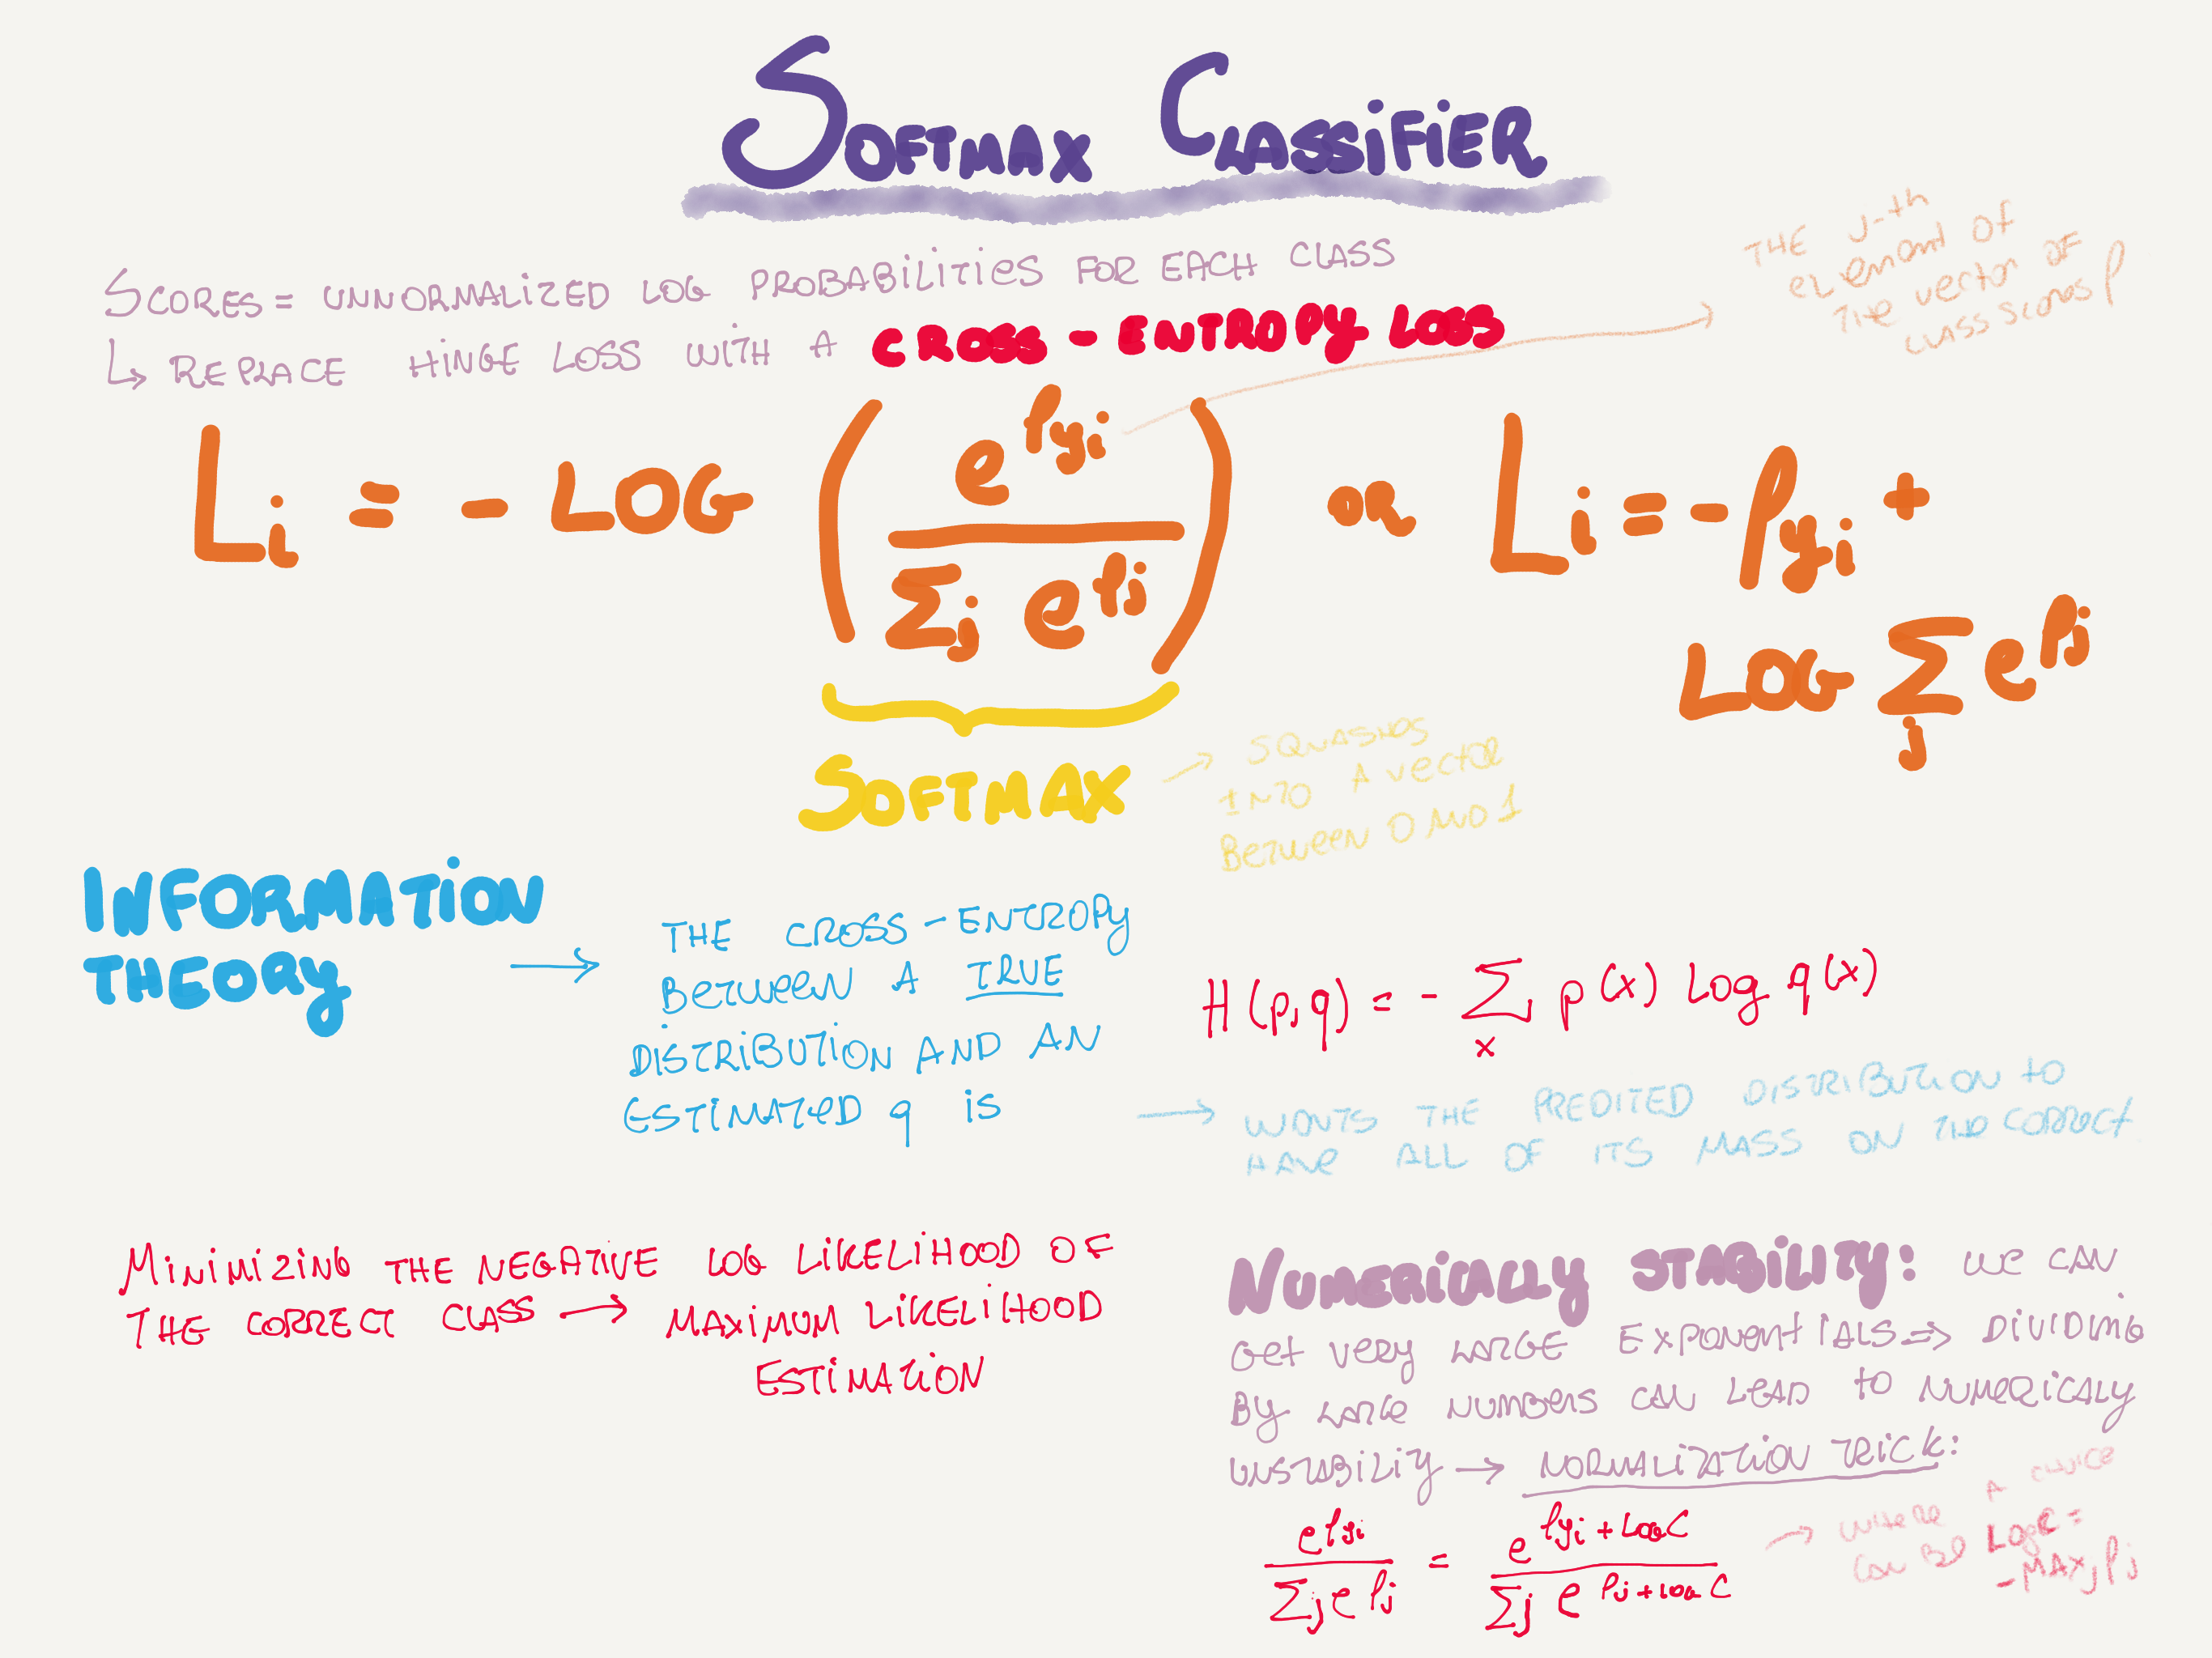 SOFTMAX CLASSIFIER
SCORES = UNNORMALIZED LOG PROBABILITIES FOR EACH CLASS
↳ REPLACE HINGE LOSS WITH A CROSS-ENTROPY LOSS
THE J-th
ELEMENT OF
THE VECTOR OF
CLASS SCORES f
L_i = - LOG ( e^{f_{y_i}} / Σ_j e^{f_j} ) OR L_i = - f_{y_i} +
LOG Σ_j e^{f_j}
SOFTMAX
→ SQUASHES
INTO A VECTOR
BETWEEN 0 AND 1
INFORMATION
THEORY →
THE CROSS-ENTROPY
BETWEEN A TRUE
DISTRIBUTION AND AN
ESTIMATED q IS
H(p,q) = - Σ_x p(x) log q(x)
→ WANTS THE PREDITED DISTRIBUTION TO
HAVE ALL OF ITS MASS ON THE CORRECT
MINIMIZING THE NEGATIVE LOG LIKELIHOOD OF
THE CORRECT CLASS → MAXIMUM LIKELIHOOD
ESTIMATION
NUMERICALLY STABILITY: WE CAN
GET VERY LARGE EXPONENTIALS ⇒ DIVIDING
BY LARGE NUMBERS CAN LEAD TO NUMERICALY
UNSTABILITY → NORMALIZATION TRICK:
e^{f_{y_i}} / Σ_j e^{f_j} = e^{f_{y_i} + LOG C} / Σ_j e^{f_j + LOG C}
→ WHERE A CHOICE
CAN BE LOG C =
- MAX_j f_j